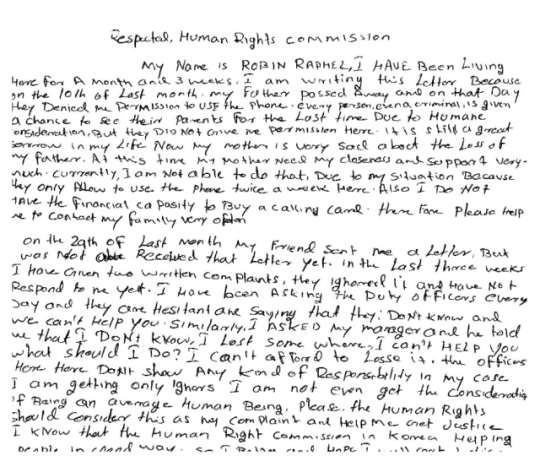 Respected, Human Rights commission
My Name is ROBIN RAPHEL, I HAVE Been Living
Here For A month and 3 weeks. I am writing this Letter Because
on the 10th of Last month. my Father passed Away and on that Day
They Denied me Permission to USE the Phone. every person, even a criminal, is given
a chance to see their Parents For the Last time Due to Humane
consideration, But they DID NOT Give me permission Here. it is still a great
sorrow in my Life Now my mother is very sad about the Loss of
my father. At this time my Mother Need my closeness and support very-
much. currently, I am Not able to do that, Due to my situation Because
they only Allow to use the phone twice a week Here. Also I Do Not
HAVE the Financial capasity to Buy a calling card. there Fore Please Help
me to contact my family very often
on the 29th of Last month my Friend sent me a Letter, But
was Not Received that Letter yet. in the Last three weeks
I Have Given two written complaints, they ignored it and Have Not
Respond to me yet. I Have been Asking the Duty officers Every
Day and they are Hesitant are Saying that they: DON'T KNOW and
we can't Help you. Similarly, I ASKED my manager and he told
me that I DON't know, I Lost some where, I can't HELP you
what should I Do? I can't afford to Losse it. the officers
Here Here Don't show Any kind of Responsibility in my case
I am getting only Ignors I am not even get the Consideratio
of Being an average Human Being. Please. the Human Rights
should Consider this as my Complaint and Help me Get Justice
I know that the Human Right commission in Korea Helping
people in Good way. so I